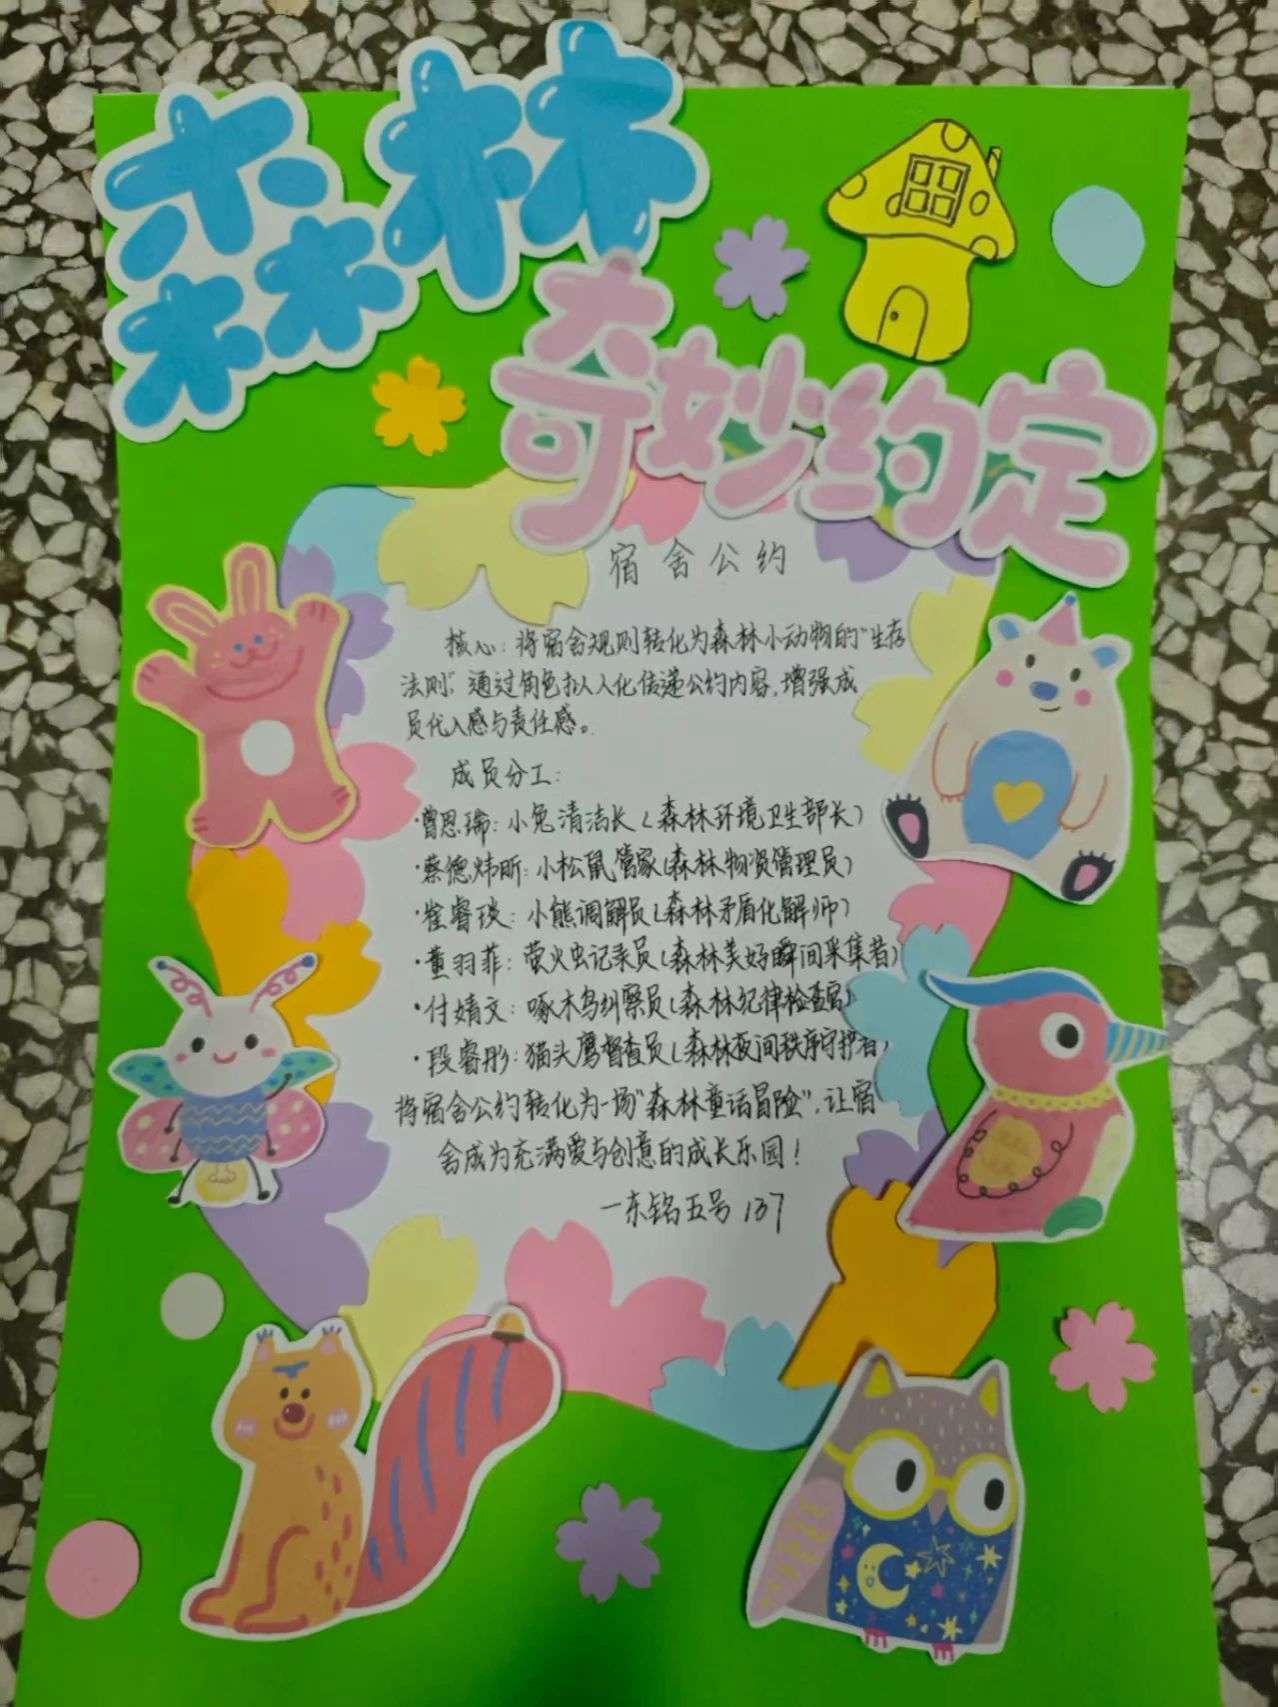 森林
奇妙约定
宿舍公约
核心：将宿舍规则转化为森林小动物的“生存
法则”，通过角色拟人化传递公约内容，增强成
员代入感与责任感。
成员分工：
·曾思瑞：小兔清洁长（森林环境卫生部长）
·蔡德炜昕：小松鼠管家（森林物资管理员）
·崔睿琰：小熊调解员（森林矛盾化解师）
·董羽菲：萤火虫记录员（森林美好瞬间采集者）
·付婧文：啄木鸟纠察员（森林纪律检查官）
·段睿彤：猫头鹰督查员（森林夜间秩序守护者）
将宿舍公约转化为一场“森林童话冒险”，让宿
舍成为充满爱与创意的成长乐园！
—东铭五号137